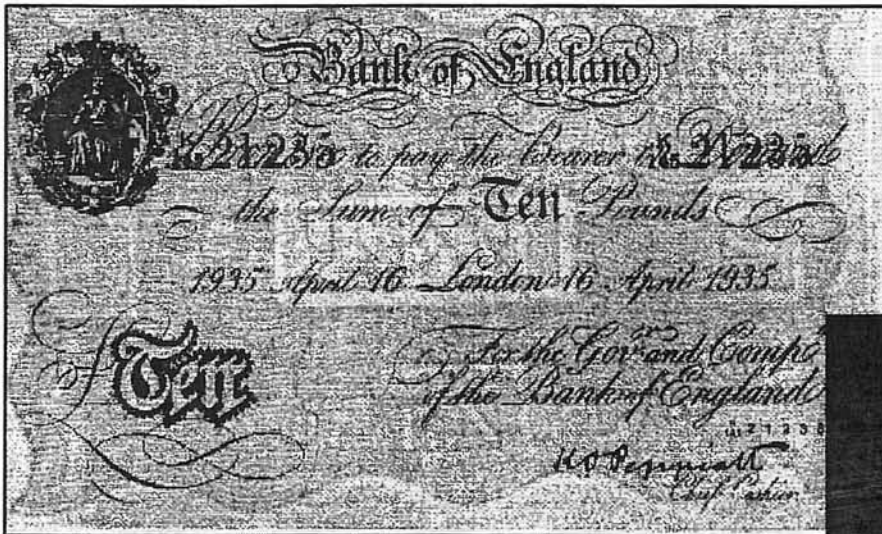 Bank of England
to pay the Bearer on Demand
21235 21235
the Sum of Ten Pounds
1935 April 16 London 16 April 1935
Ten
For the Govr. and Compa.
of the Bank of England
21235
Chief Cashier